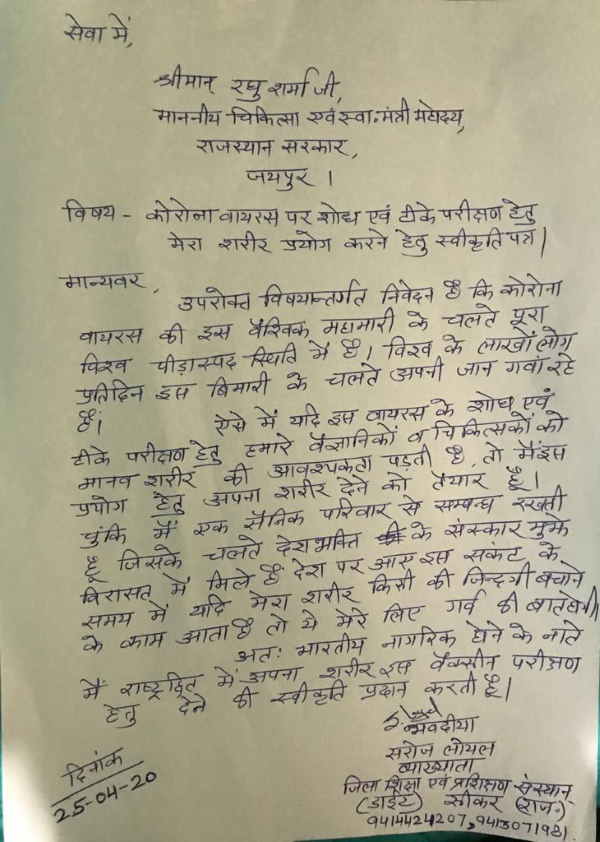 सेवा में,
श्रीमान् रघु शर्मा जी,
माननीय चिकित्सा एवं स्वा. मंत्री महोदय,
राजस्थान सरकार,
जयपुर ।
विषय - कोरोना वायरस पर शोध एवं टीके परीक्षण हेतु
मेरा शरीर प्रयोग करने हेतु स्वीकृति पत्र।
मान्यवर,
उपरोक्त विषयान्तर्गत निवेदन है कि कोरोना
वायरस की इस वैश्विक महामारी के चलते पूरा
विश्व पीड़ास्पद स्थिति में है। विश्व के लाखों लोग
प्रतिदिन इस बिमारी के चलते अपनी जान गवां रहे
हैं। ऐसे में यदि इस वायरस के शोध एवं
टीके परीक्षण हेतु हमारे वैज्ञानिकों व चिकित्सकों को
मानव शरीर की आवश्यकता पड़ती है, तो मैं इस
प्रयोग हेतु अपना शरीर देने को तैयार हूँ।
चुंकि मैं एक सैनिक परिवार से सम्बन्ध रखती
हूँ जिसके चलते देशभक्ति के संस्कार मुझे
विरासत में मिले हैं देश पर आए इस संकट के
समय में यदि मेरा शरीर किसी की जिन्दगी बचाने
के काम आता है तो ये मेरे लिए गर्व की बात होगी
अतः भारतीय नागरिक होने के नाते
मैं राष्ट्रहित में अपना शरीर इस वैक्सीन परीक्षण
हेतु देने की स्वीकृति प्रदान करती हूँ।
भवदीया
सरोज लोयल
व्याख्याता
जिला शिक्षा एवं प्रशिक्षण संस्थान
(डाईट) सीकर (राज.)
9414424207, 9413071981
दिनांक
25-04-20